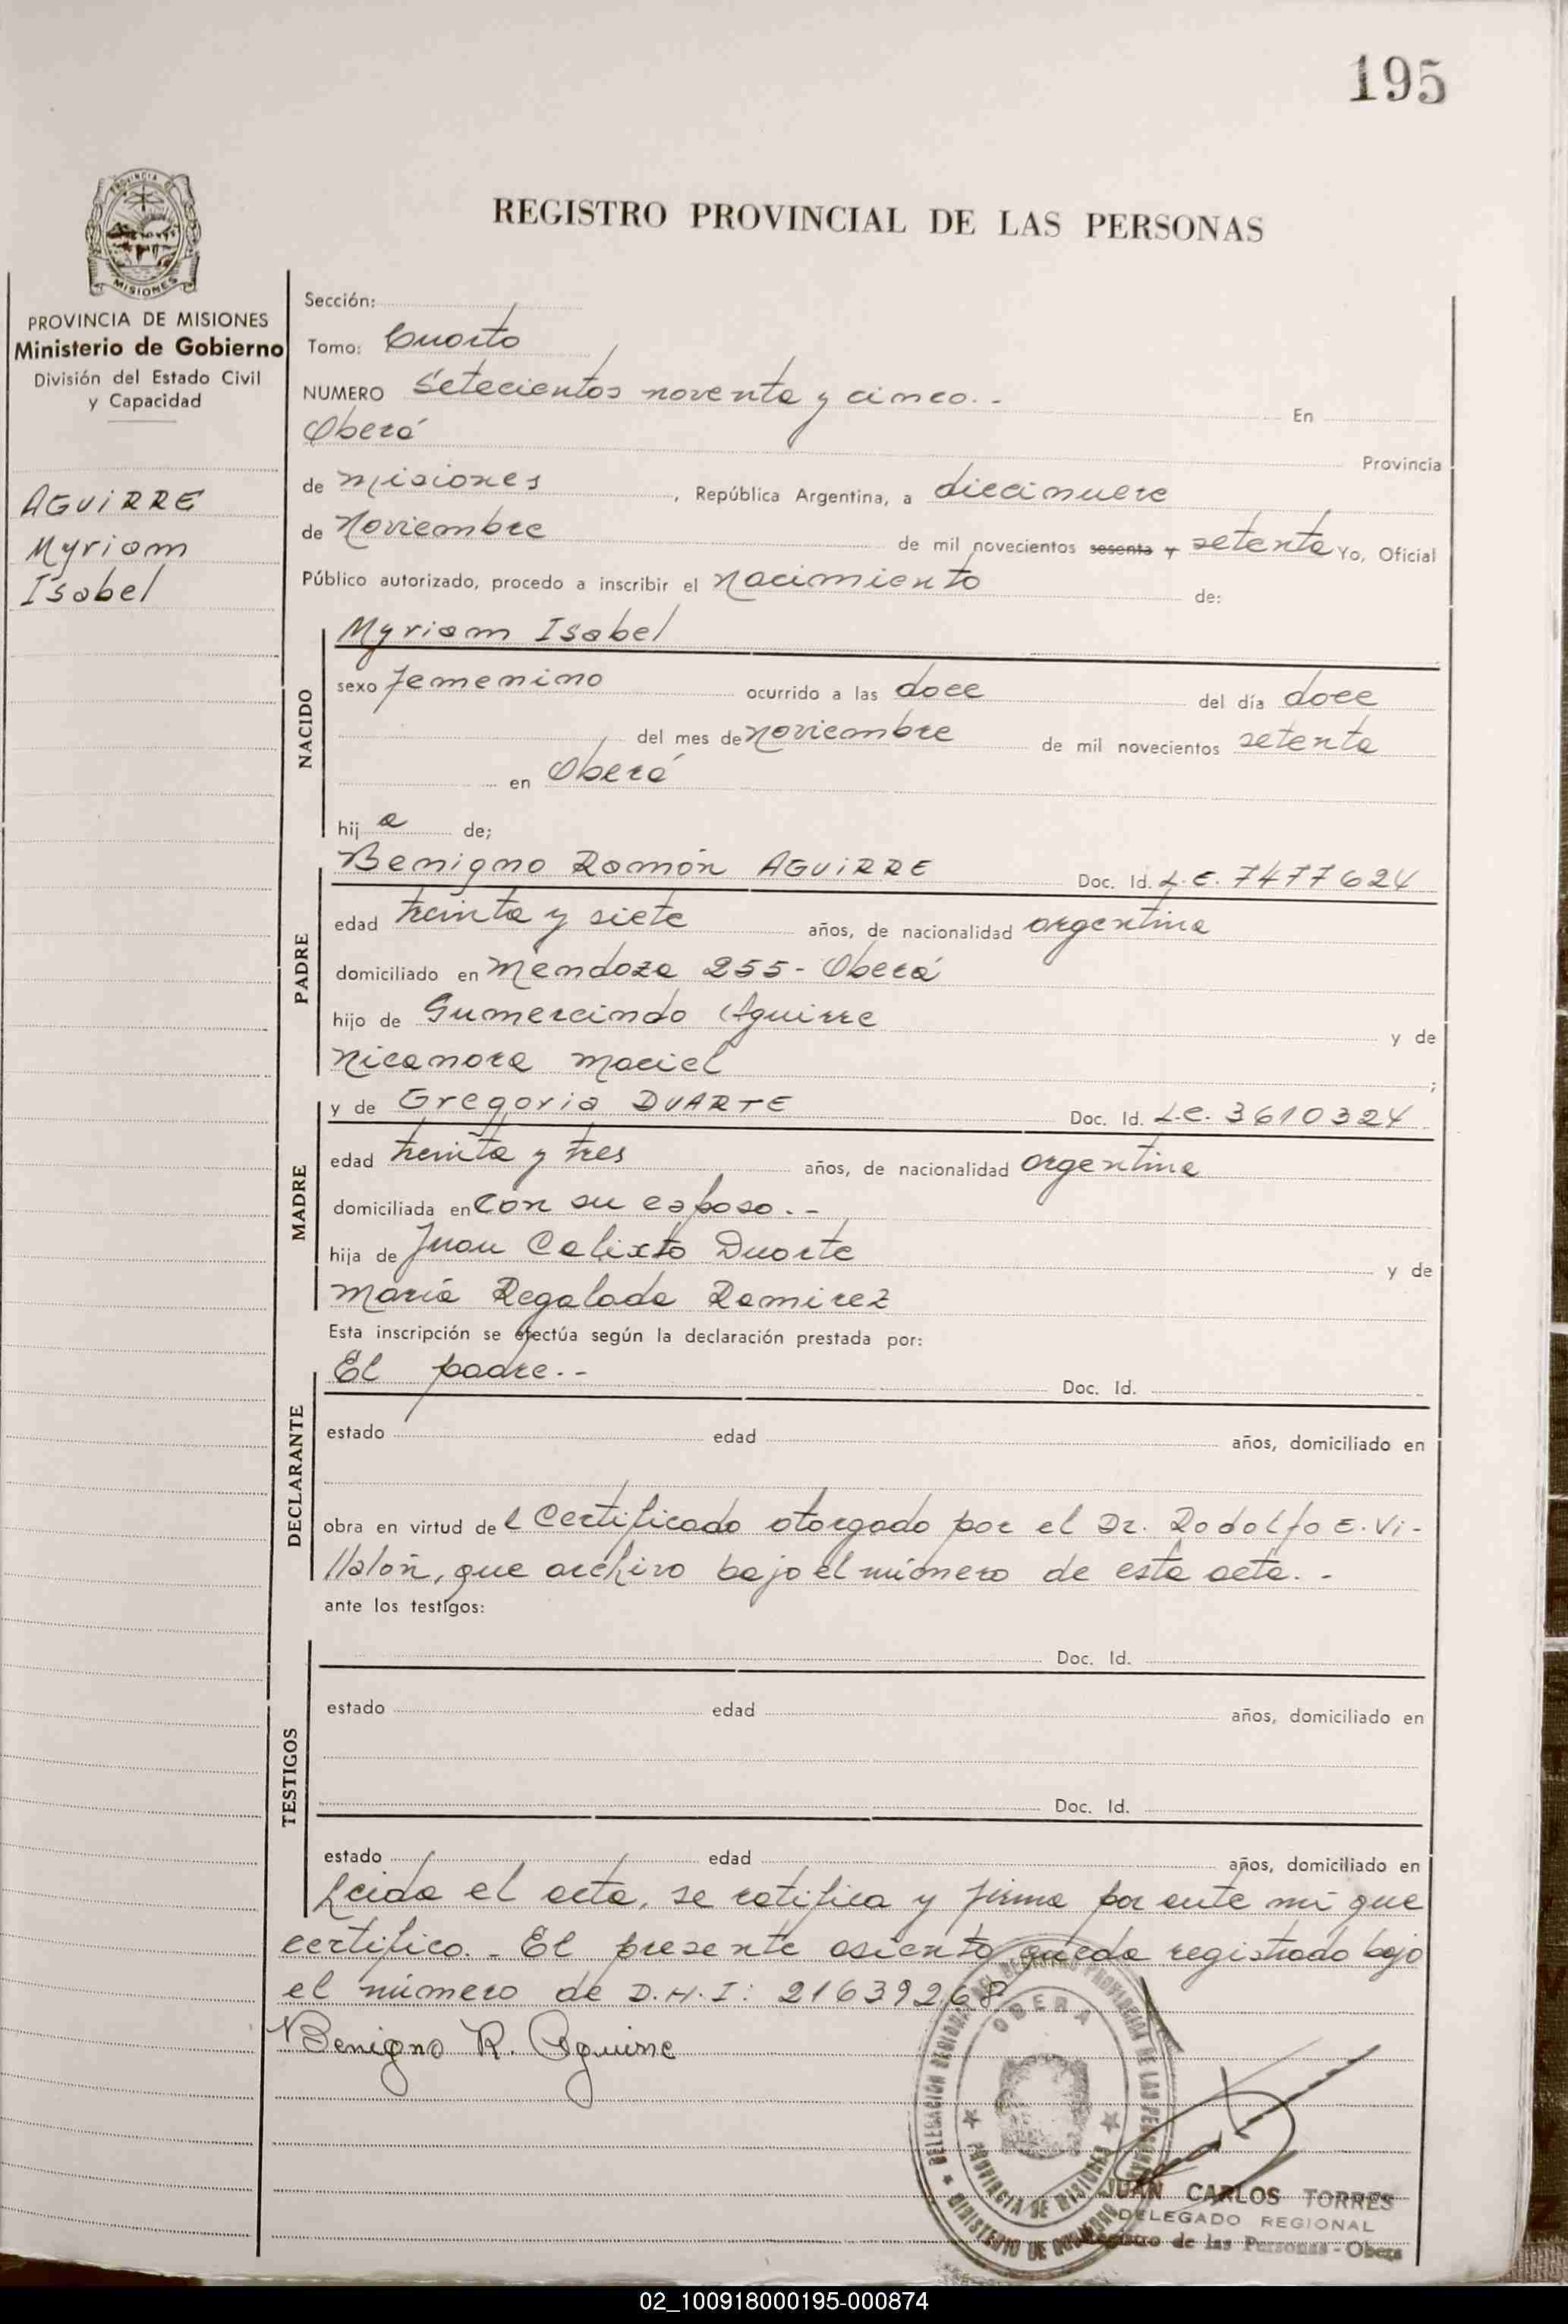 195
PROVINCIA DE
MISIONES
REGISTRO PROVINCIAL DE LAS PERSONAS
PROVINCIA DE MISIONES
Ministerio de Gobierno
División del Estado Civil
y Capacidad
AGUIRRE
Myriam
Isabel
Sección:
Tomo: Cuarto
NUMERO Setecientos noventa y cinco.- En
Oberá Provincia
de Misiones, República Argentina, a diecinueve
de Noviembre de mil novecientos sesenta y setenta Yo, Oficial
Público autorizado, procedo a inscribir el Nacimiento de:
NACIDO
Myriam Isabel
sexo femenino ocurrido a las doce del día doce
del mes de Noviembre de mil novecientos setenta
en Oberá
hij a de;
PADRE
Benigno Ramón AGUIRRE Doc. Id. L.E. 7477624
edad treinta y siete años, de nacionalidad argentina
domiciliado en Mendoza 255- Oberá
hijo de Gumercindo Aguirre y de
Nicanora Maciel ;
MADRE
y de Gregoria DUARTE Doc. Id. L.C. 3610324
edad treinta y tres años, de nacionalidad argentina
domiciliada en con su esposo.-
hija de Juan Calixto Duarte y de
María Regalada Ramirez
Esta inscripción se efectúa según la declaración prestada por:
DECLARANTE
El padre.-- Doc. Id.
estado edad años, domiciliado en
obra en virtud de l Certificado otorgado por el Dr. Rodolfo E. Vi-
llalón, que archivo bajo el número de esta acta.-
ante los testigos:
TESTIGOS
Doc. Id.
estado edad años, domiciliado en
Doc. Id.
estado edad años, domiciliado en
Leida el acta, se ratifica y firma por ante mí que
certifico.- El presente asiento queda registrado bajo
el número de D.N.I: 21639268
Benigno R. Aguirre
DELEGACION REGIONAL DEL REGISTRO PROVINCIAL DE LAS PERSONAS
OBERA
PROVINCIA DE MISIONES
MINISTERIO DE GOBIERNO
JUAN CARLOS TORRES
DELEGADO REGIONAL
Registro de las Personas - Obera
02_100918000195-000874